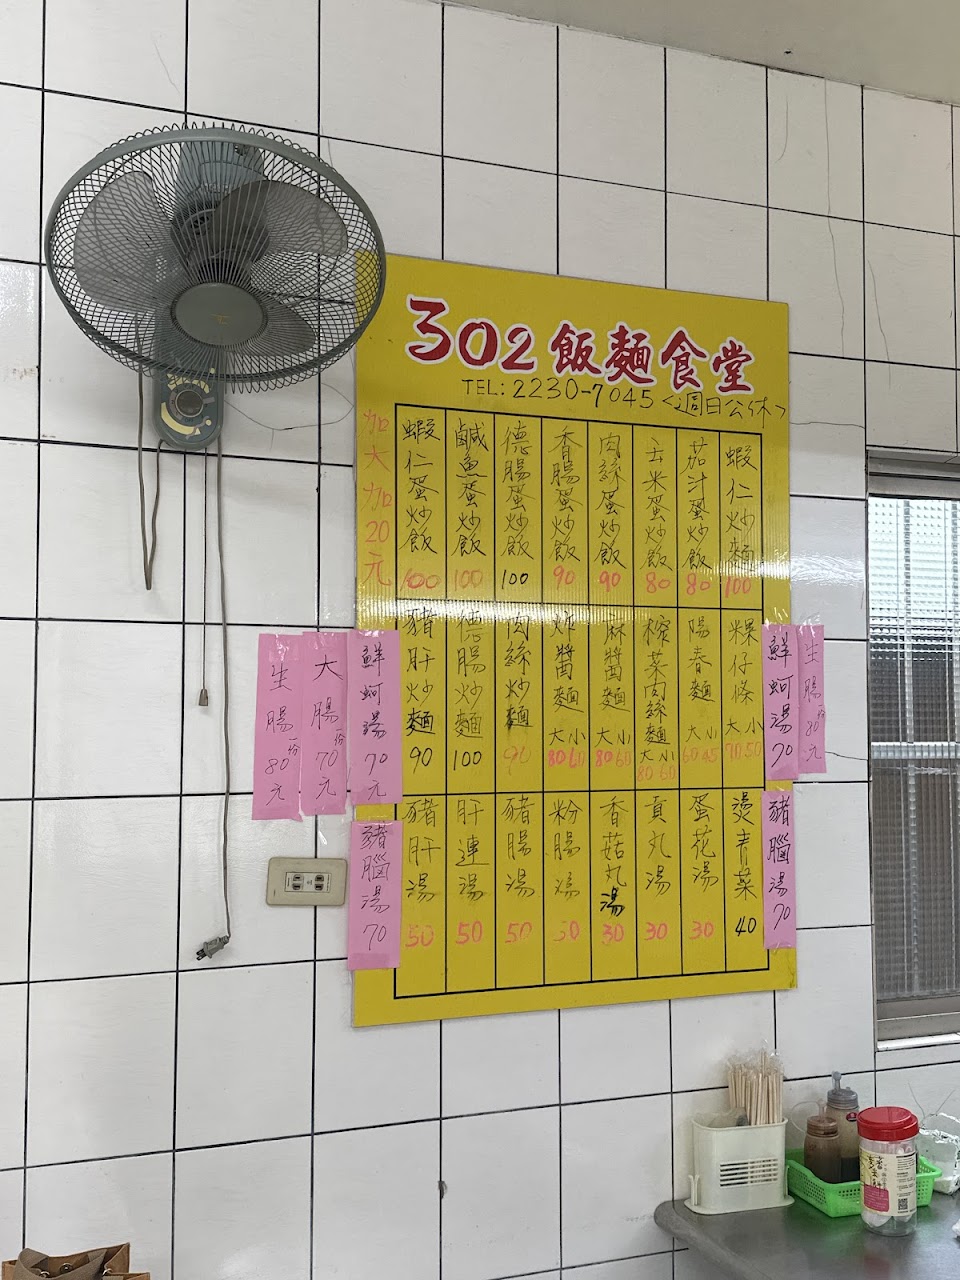 302飯麵食堂
TEL:2230-7045<週日公休>
蝦仁炒麵 100
茄汁蛋炒飯 80
玉米蛋炒飯 80
肉絲蛋炒飯 90
香腸蛋炒飯 90
德腸蛋炒飯 100
鹹魚蛋炒飯 100
蝦仁蛋炒飯 100
加大加20元
粿仔條 大70 小50
陽春麵 大60 小45
榨菜肉絲麵 大80 小60
麻醬麵 大80 小60
炸醬麵 大80 小60
肉絲炒麵 90
德腸炒麵 100
豬肝炒麵 90
燙青菜 40
蛋花湯 30
貢丸湯 30
香菇丸湯 30
粉腸湯 50
豬腸湯 50
肝連湯 50
豬肝湯 50
生腸一份80元
鮮蚵湯70
豬腦湯70
鮮蚵湯70元
大腸一份70元
生腸一份80元
豬腦湯70